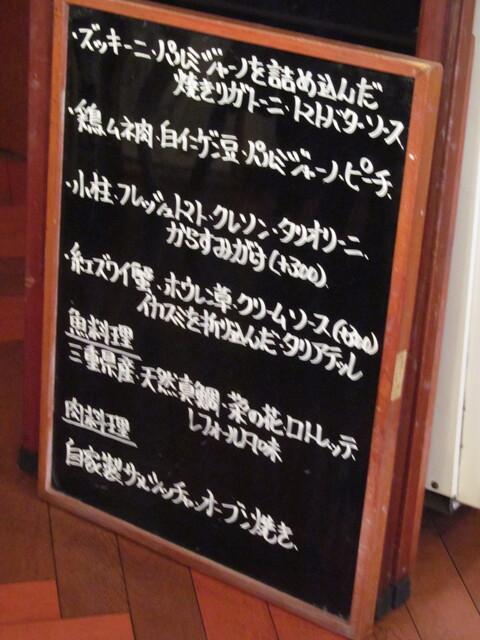 ・ズッキーニ・パルミジャーノを詰め込んだ
焼きリガトーニ・トマトバターソース
・鶏ムネ肉・白インゲン豆・パルミジャーノ・ピーチ
・小柱・フレッシュトマト・クレソン・タリオリーニ
からすみがけ(+300)
・紅ズワイ蟹・ホウレン草・クリームソース(+300)
イカスミを折り込んだ・タリアテッレ
魚料理
三重県産・天然真鯛・菜の花・ロトレッテ
レフォール風味
肉料理
自家製サルシッチャ・オーブン焼き